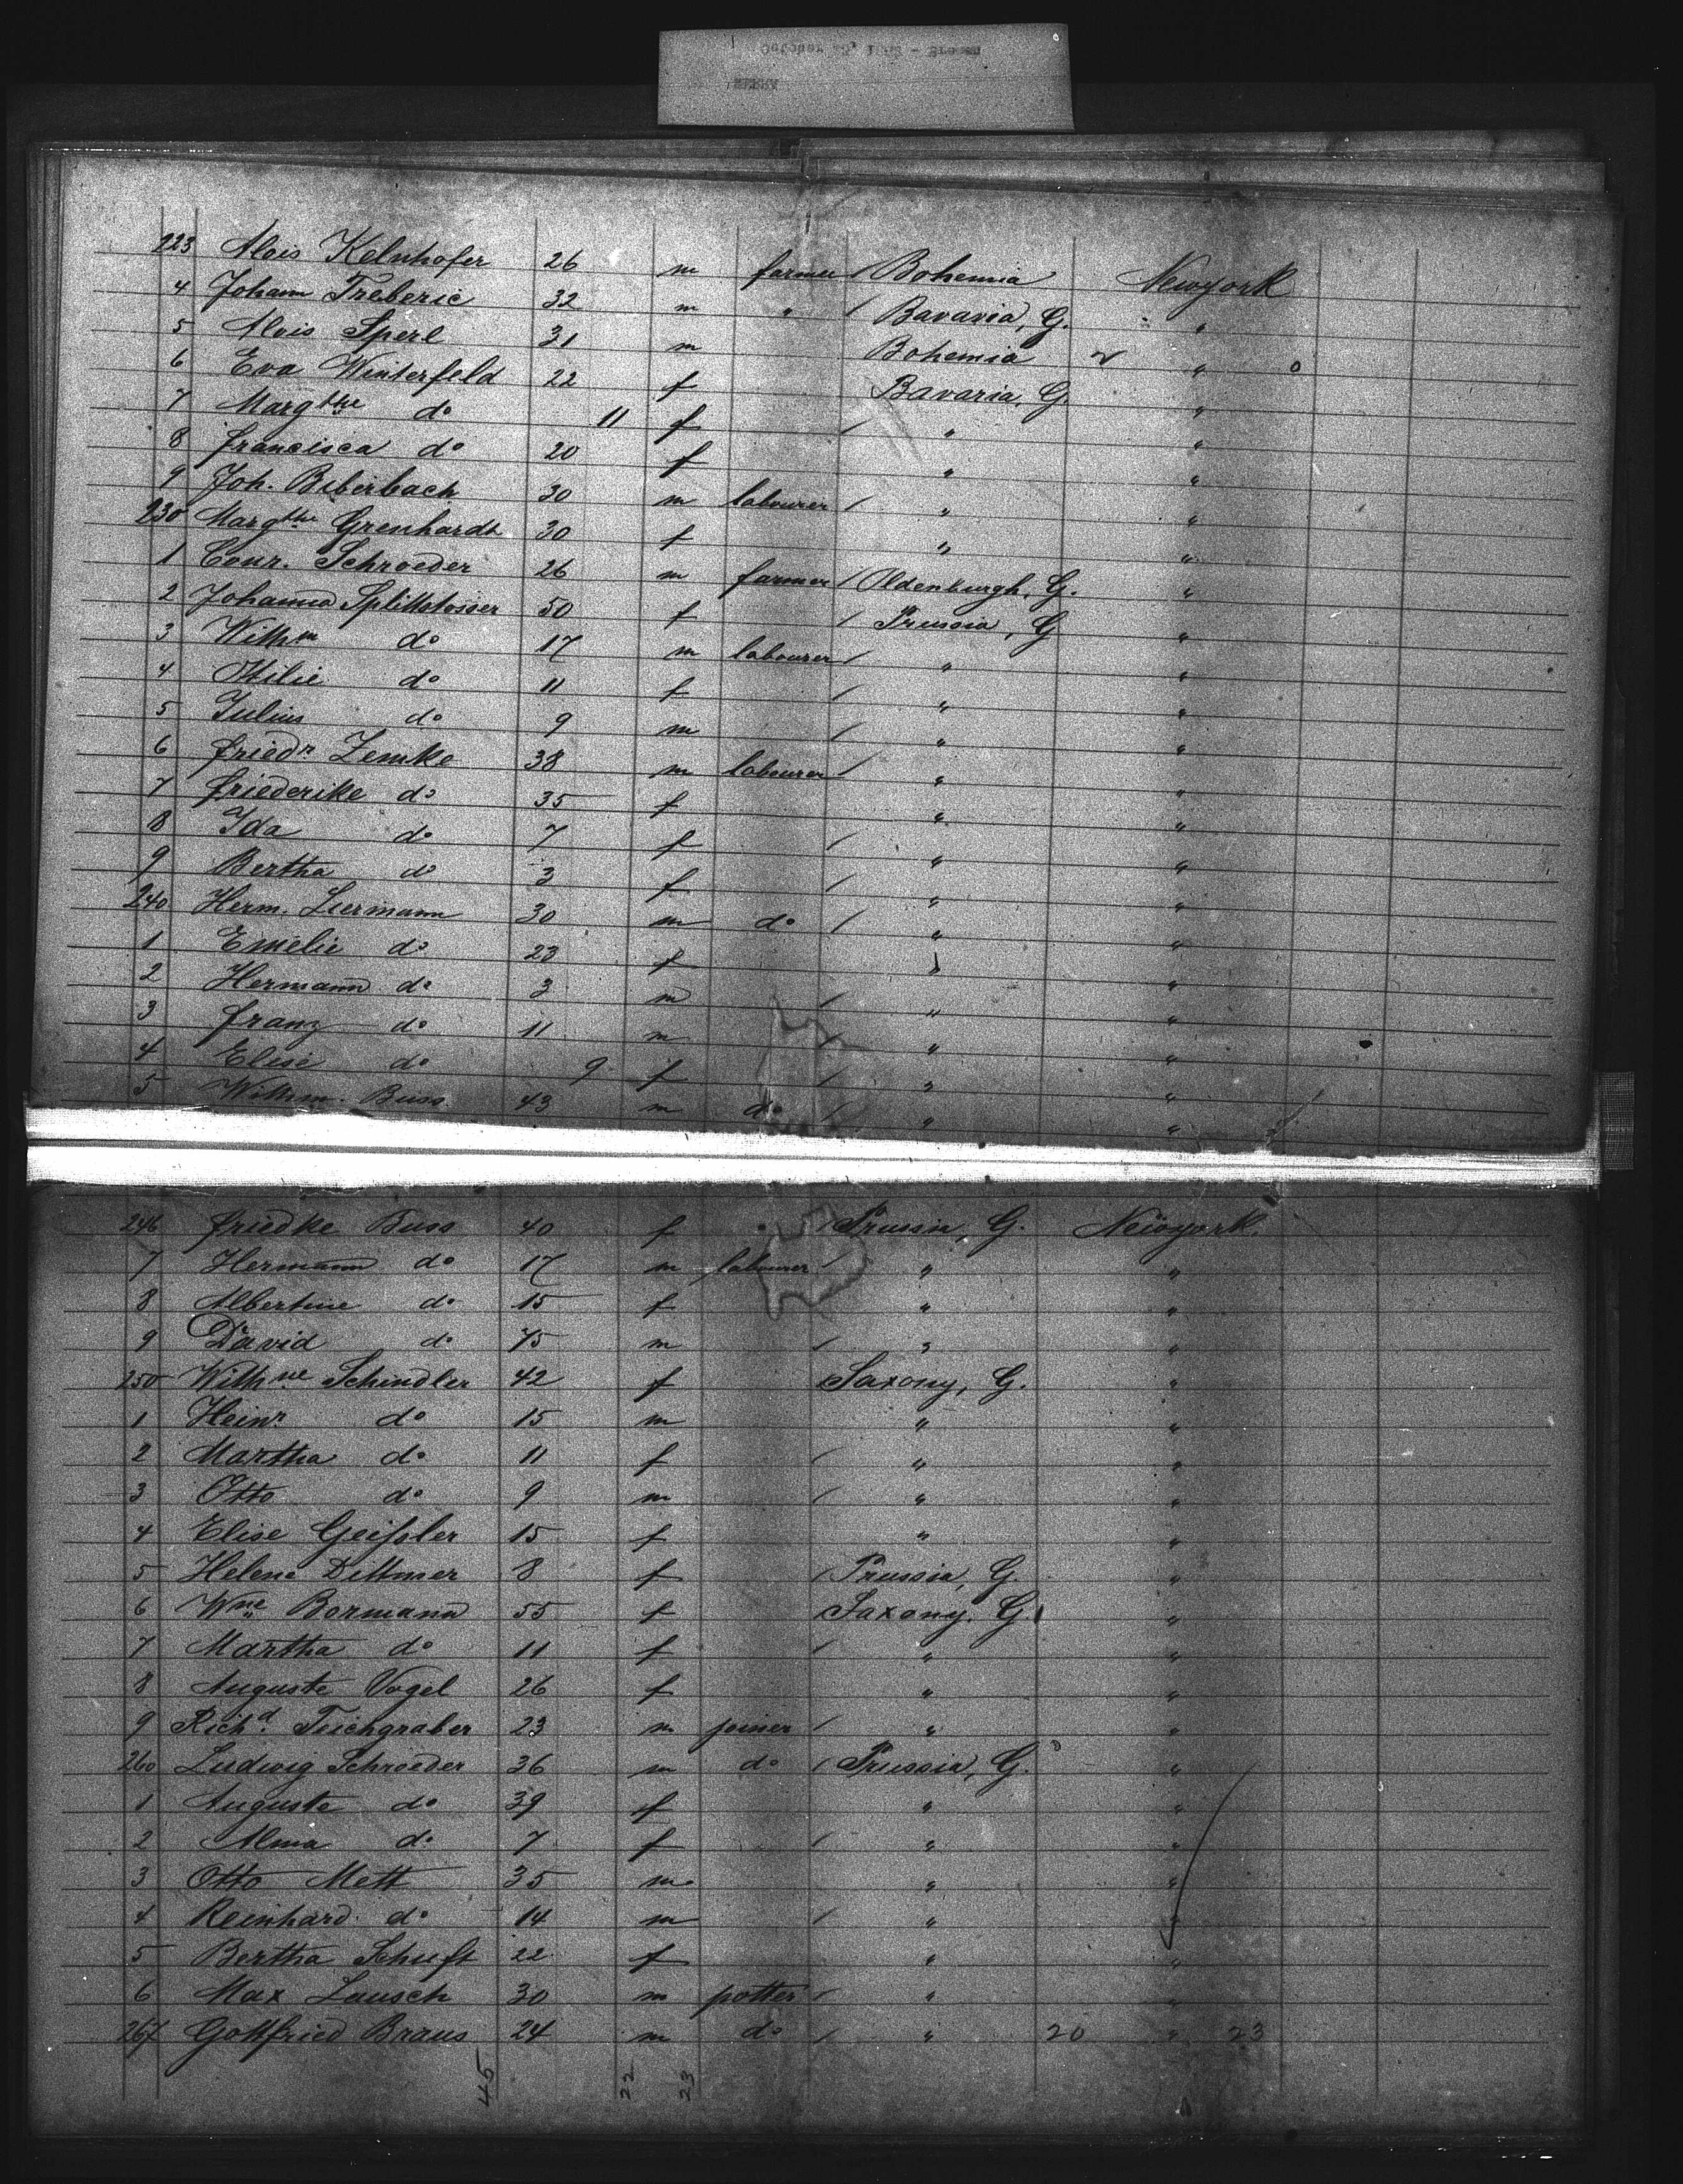 223 Alois Kelnhofer 26 m farmer / Bohemia Newyork
4 Johann Treberic 32 m " / Bavaria, G. "
5 Alois Sperl 31 m Bohemia "
6 Eva Winterfeld 22 f Bavaria, G. "
7 Margthe do 11 f / " "
8 Francisca do 20 f " "
9 Joh. Biberbach 30 m labourer / " "
230 Margthe Grenhardt 30 f " "
1 Conr. Schroeder 26 m farmer / Oldenburgh, G. "
2 Johanna Splittstosser 50 f / Prussia, G "
3 Wilhm do 17 m labourer / " "
4 Ottilie do 11 f / " "
5 Julius do 9 m / " "
6 Friedr. Zemke 38 m labourer / " "
7 Friederike do 35 f " "
8 Ida do 7 f / " "
9 Bertha do 3 f / " "
240 Herm. Liermann 30 m do / " "
1 Emelie do 23 f " "
2 Hermann do 3 m / " "
3 Franz do 11 m / " "
4 Elise do 9 f / " "
5 Wilhm. Buss 43 m do / " "
246 Friedke Buss 40 f " / Prussia, G. Newyork.
7 Hermann do 17 m labourer / " "
8 Albertine do 15 f " "
9 David do 75 m / " "
250 Wilhne Schindler 42 f Saxony, G. "
1 Heinr do 15 m " "
2 Martha do 11 f / " "
3 Otto do 9 m / " "
4 Elise Geißler 15 f " "
5 Helene Dittmer 8 f / Prussia, G. "
6 Wne Bormann 55 f Saxony. G. "
7 Martha do 11 f / " "
8 Auguste Vogel 26 f " "
9 Richd. Teichgraber 23 m joiner / " "
260 Ludwig Schroeder 36 m do / Prussia, G. "
1 Auguste do 39 f " "
2 Alma do 7 f / " "
3 Otto Mett 35 m " "
4 Reinhard do 14 m / " "
5 Bertha Schuft 22 f " "
6 Max Lausch 30 m potter / " "
267 Gottfried Braus 24 m do / " 20 " 23
45 22 23